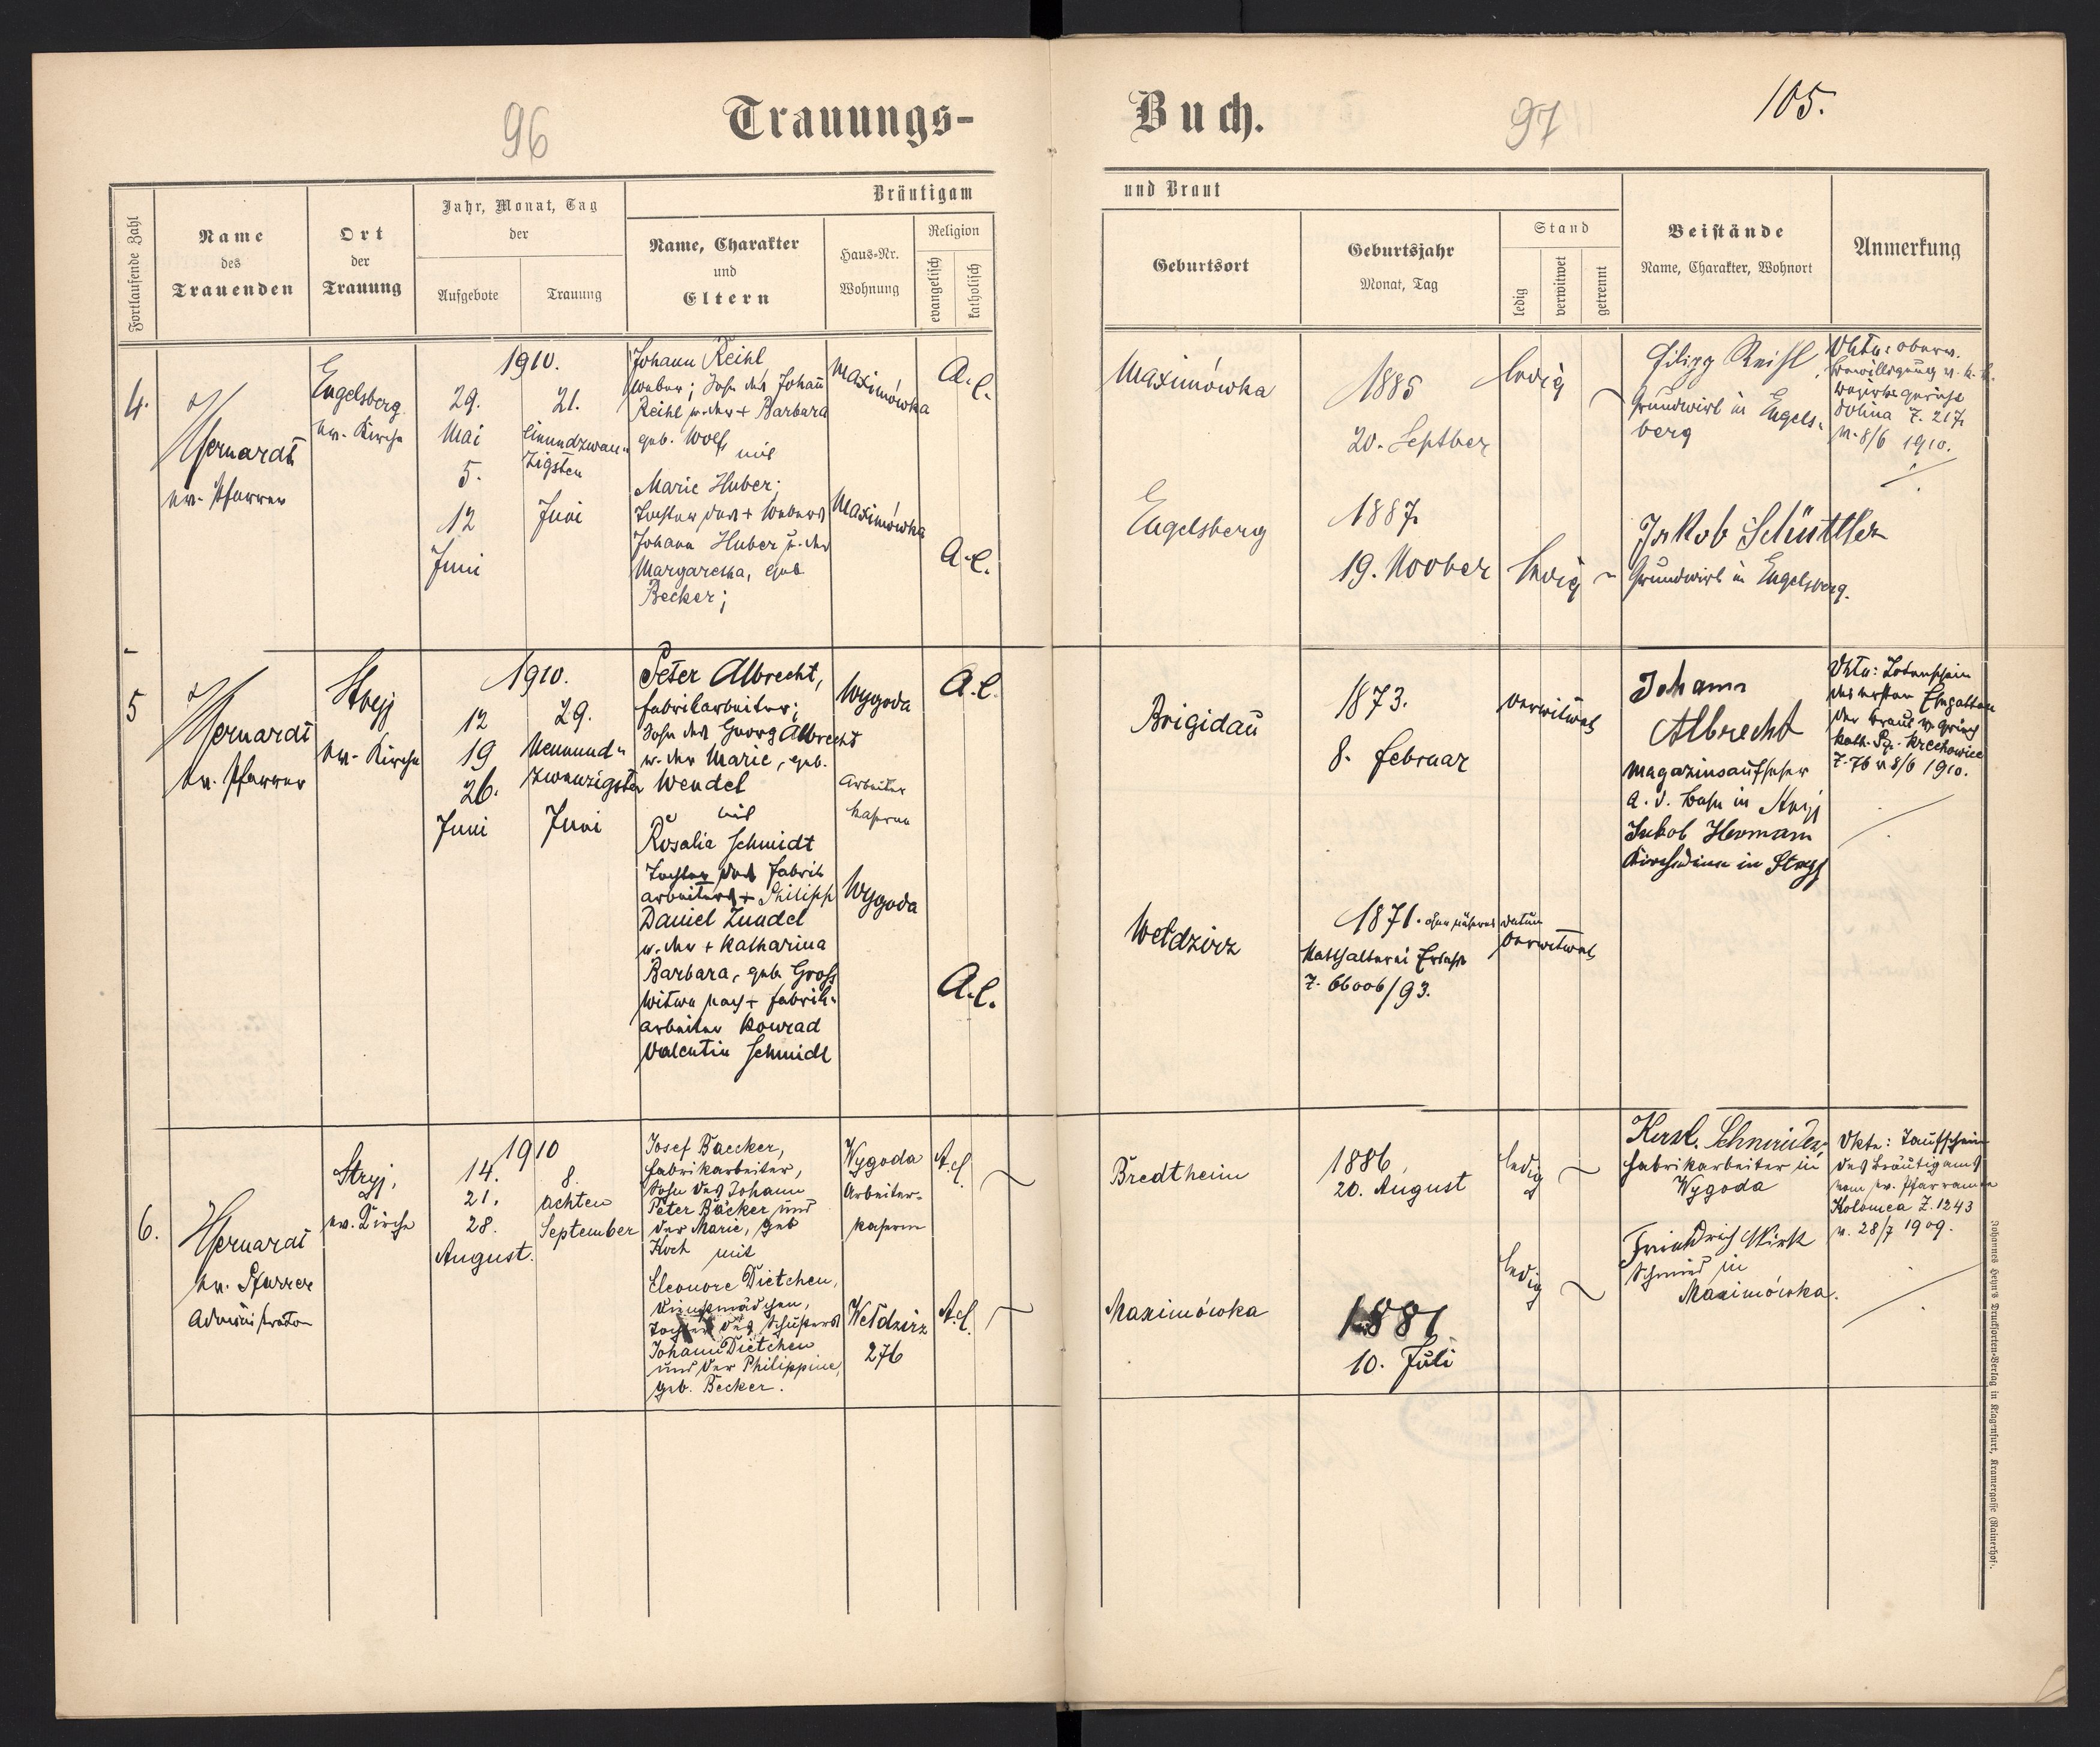 96
Trauungs-
Buch.
97
105.
Fortlaufende Zahl
Name
des
Trauenden
Ort
der
Trauung
Jahr, Monat, Tag
der
Aufgebote
Trauung
Bräutigam
Name, Charakter
und
Eltern
Haus-Nr.
Wohnung
Religion
evangelisch
katholisch
und Braut
Geburtsort
Geburtsjahr
Monat, Tag
Stand
ledig
verwitwet
getrennt
Beistände
Name, Charakter, Wohnort
Anmerkung
4.
ev. Pfarrer
Engelsberg
ev. Kirche
1910.
29.
Mai
5.
12
Juni
21.
Einundzwan-
zigsten
Juni
Johann Reihl
Weber; Sohn des Johann
Reihl u. der + Barbara
geb. Wolf
mit
Marie Huber;
Tochter des + Webers
Johann Huber u. der
Margaretha, geb.
Becker;
Maximówka
Maximówka
A.C.
A.C.
Maximówka
1885
20. Septber
ledig
Engelsberg
1887.
19. Novber
ledig
Filipp Reihl
Grundwirt in Engels-
berg
Jakob Schüttler
Grundwirt in Engelsberg.
Bewilligung
Bezirksgericht
Dolina Z. 217
v. 8/6 1910.
5
ev. Pfarrer
Stryj
ev. Kirche
1910.
12
19
26.
Juni
29.
Neunund-
zwanzigsten
Juni
Peter Albrecht,
Fabrikarbeiter;
Sohn des Georg Albrecht
u. der Marie, geb.
Wendel
mit
Rosalia Schmidt
Tochter des Fabrik
arbeiters + Philipp
Daniel Zundel
u. der + Katharina
Barbara, geb. Gross
Witwe nach + Fabrik-
arbeiter Konrad
Valentin Schmidt
Wygoda
Arbeiter
kaserne
Wygoda
A.C.
A.C.
Brigidau
1873.
8. Februar
verwitwet
Weldzirz
1871. ohne näheres Datum
Statthalterei Erlass
Z. 66006/93.
verwitwet
Johann
Albrecht
Magazinsaufseher
a. d. Bahn in Stryj
Jakob Hermann
Kirchendiener in Stryj
Vktn: Totenschein
des ersten Ehegatten
der Braut v. griech
kath. Krechowice
Z. 76 v. 8/6 1910.
6.
ev. Pfarrer
Administrator
Stryj,
ev. Kirche
1910
14.
21.
28.
August.
8.
achten
September
Josef Baecker,
Fabrikarbeiter,
Sohn des Johann
Peter Bäcker und
der Marie, geb
Koch mit
Eleonore Dietchen,
Dienstmädchen,
Tochter des Schusters
Johann Dietchen
und der Philippine,
geb. Becker.
Wygoda
Arbeiter-
kaserne
Weldzirz
276
A.C.
A.C.
Bredtheim
1886
20. August
ledig
Maximówka
1881
10. Juli
ledig
Schneider,
Fabrikarbeiter in
Wygoda
Friedrich
Schmied in
Maximówka.
Vktn: Taufschein
des Bräutigams
vom ev. Pfarramte
Kolomea Z. 1243
v. 28/7 1909.
Johannes Heyn's Drucksorten-Verlag in Klagenfurt, Kramergasse (Rainerhof).